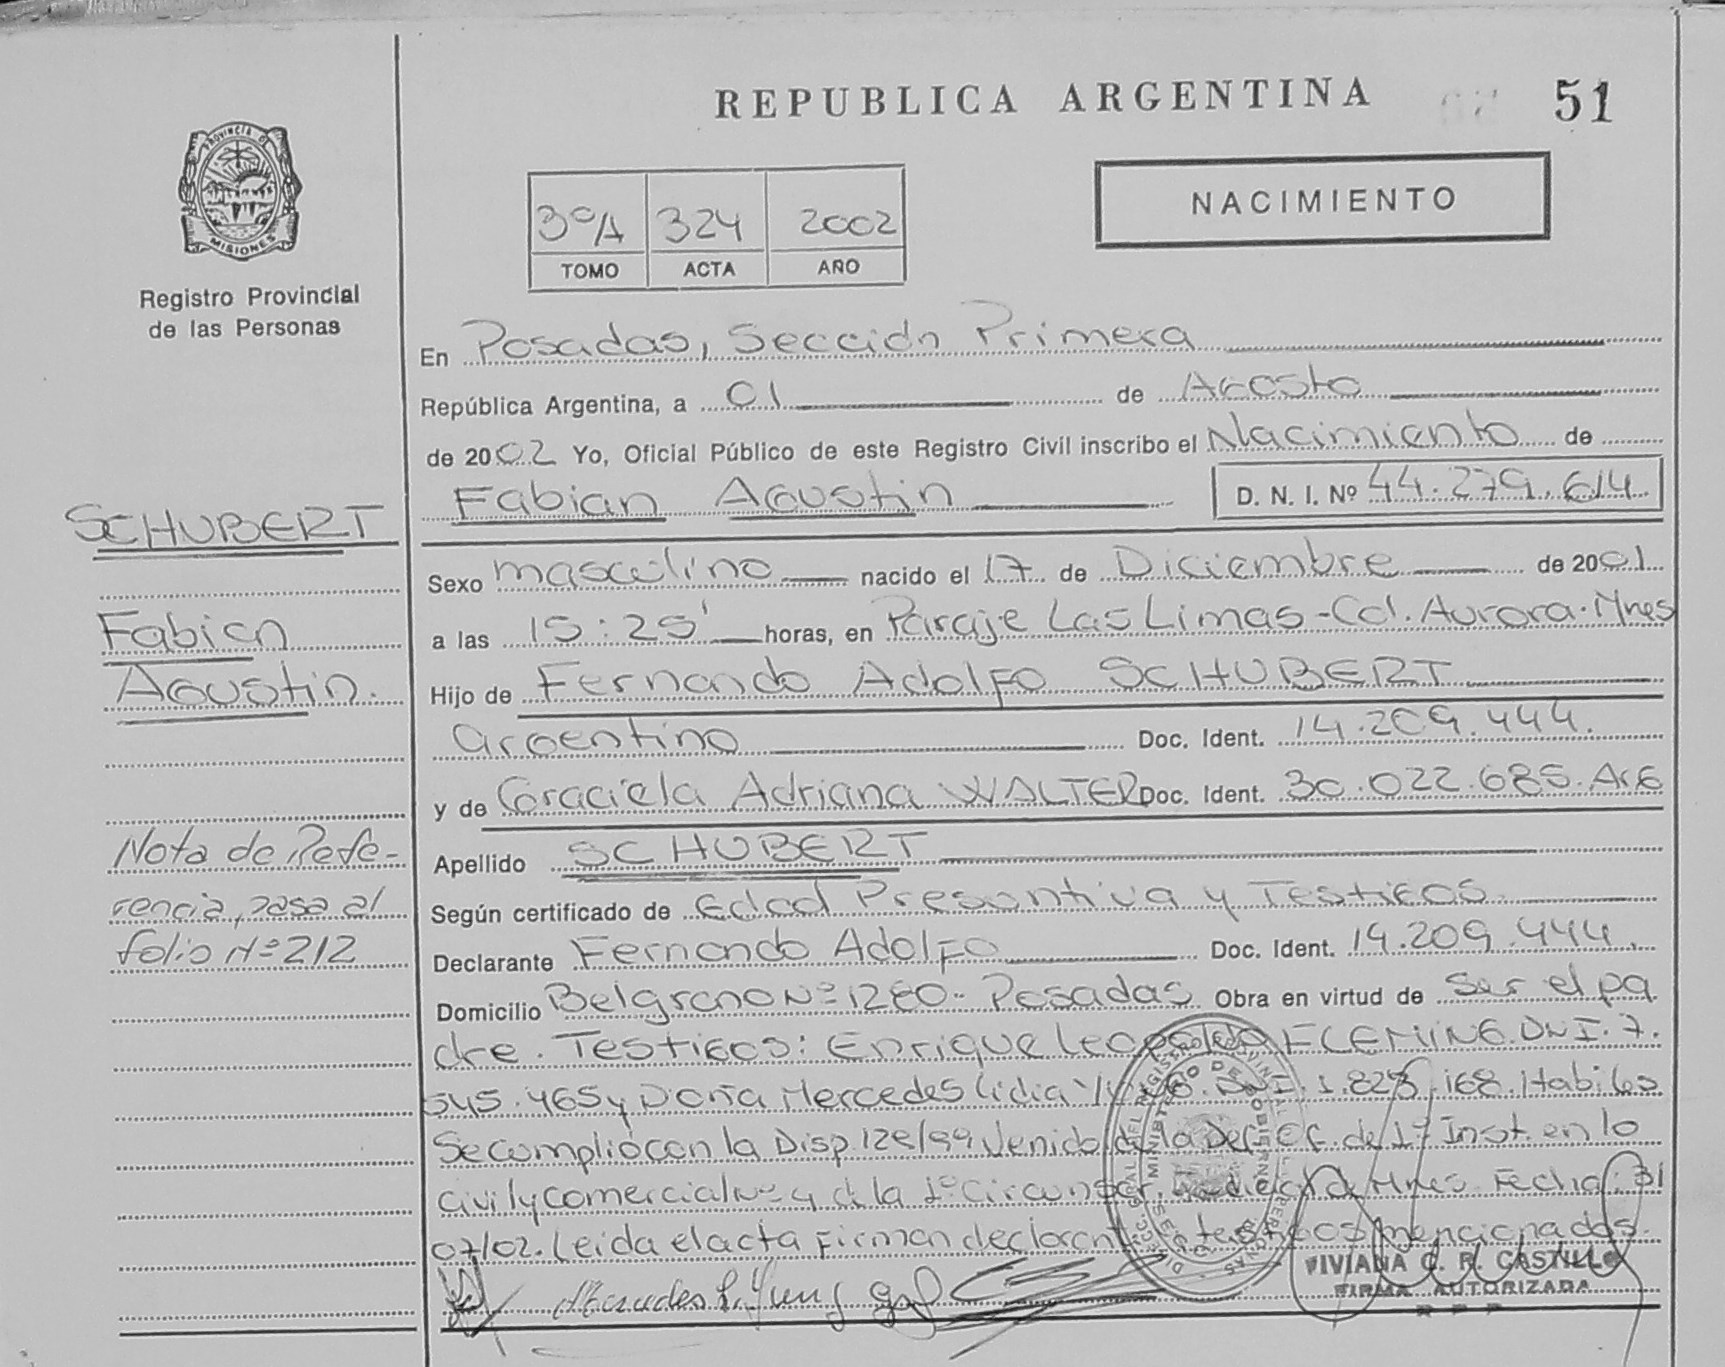 REPUBLICA ARGENTINA 51
PROVINCIA DE
MISIONES
Registro Provincial
de las Personas
3º/A 324 2002
TOMO ACTA AÑO
NACIMIENTO
En Posadas, Sección Primera
República Argentina, a 01 de Agosto
de 2002 Yo, Oficial Público de este Registro Civil inscribo el Nacimiento de
Fabian Agustin D. N. I. Nº 44.279.614
SCHUBERT
Fabian
Agustin.
Sexo masculino nacido el 17 de Diciembre de 2001
a las 15:25' horas, en Paraje Las Limas - Col. Aurora. Mnes
Hijo de Fernando Adolfo SCHUBERT
argentino Doc. Ident. 14.209.444.
y de Graciela Adriana WALTER Doc. Ident. 30.022.685. Arg
Apellido SCHUBERT
Según certificado de Edad Presuntiva y Testigos
Declarante Fernando Adolfo Doc. Ident. 14.209.444.
Domicilio Belgrano Nº 1280 - Posadas Obra en virtud de ser el pa
dre. Testigos: Enrique Leopoldo FLEMING DNI. 7.
545.465 y Doña Mercedes Lidia DNI. 1.823.168. Habiles
Se cumplió con la Disp. 128/99 Venido de la Def. Of. de 1º Inst. en lo
Civil y comercial Nº 4 d la 1º Circunscr. Judicial d Mnes Fecha: 31
07/02. Leida el acta Firman declarante testigos mencionados.
Nota de Refe-
rencia, pasa al
folio Nº 212
VIVIANA C. R. CASTILLO
FIRMA AUTORIZADA
R P P